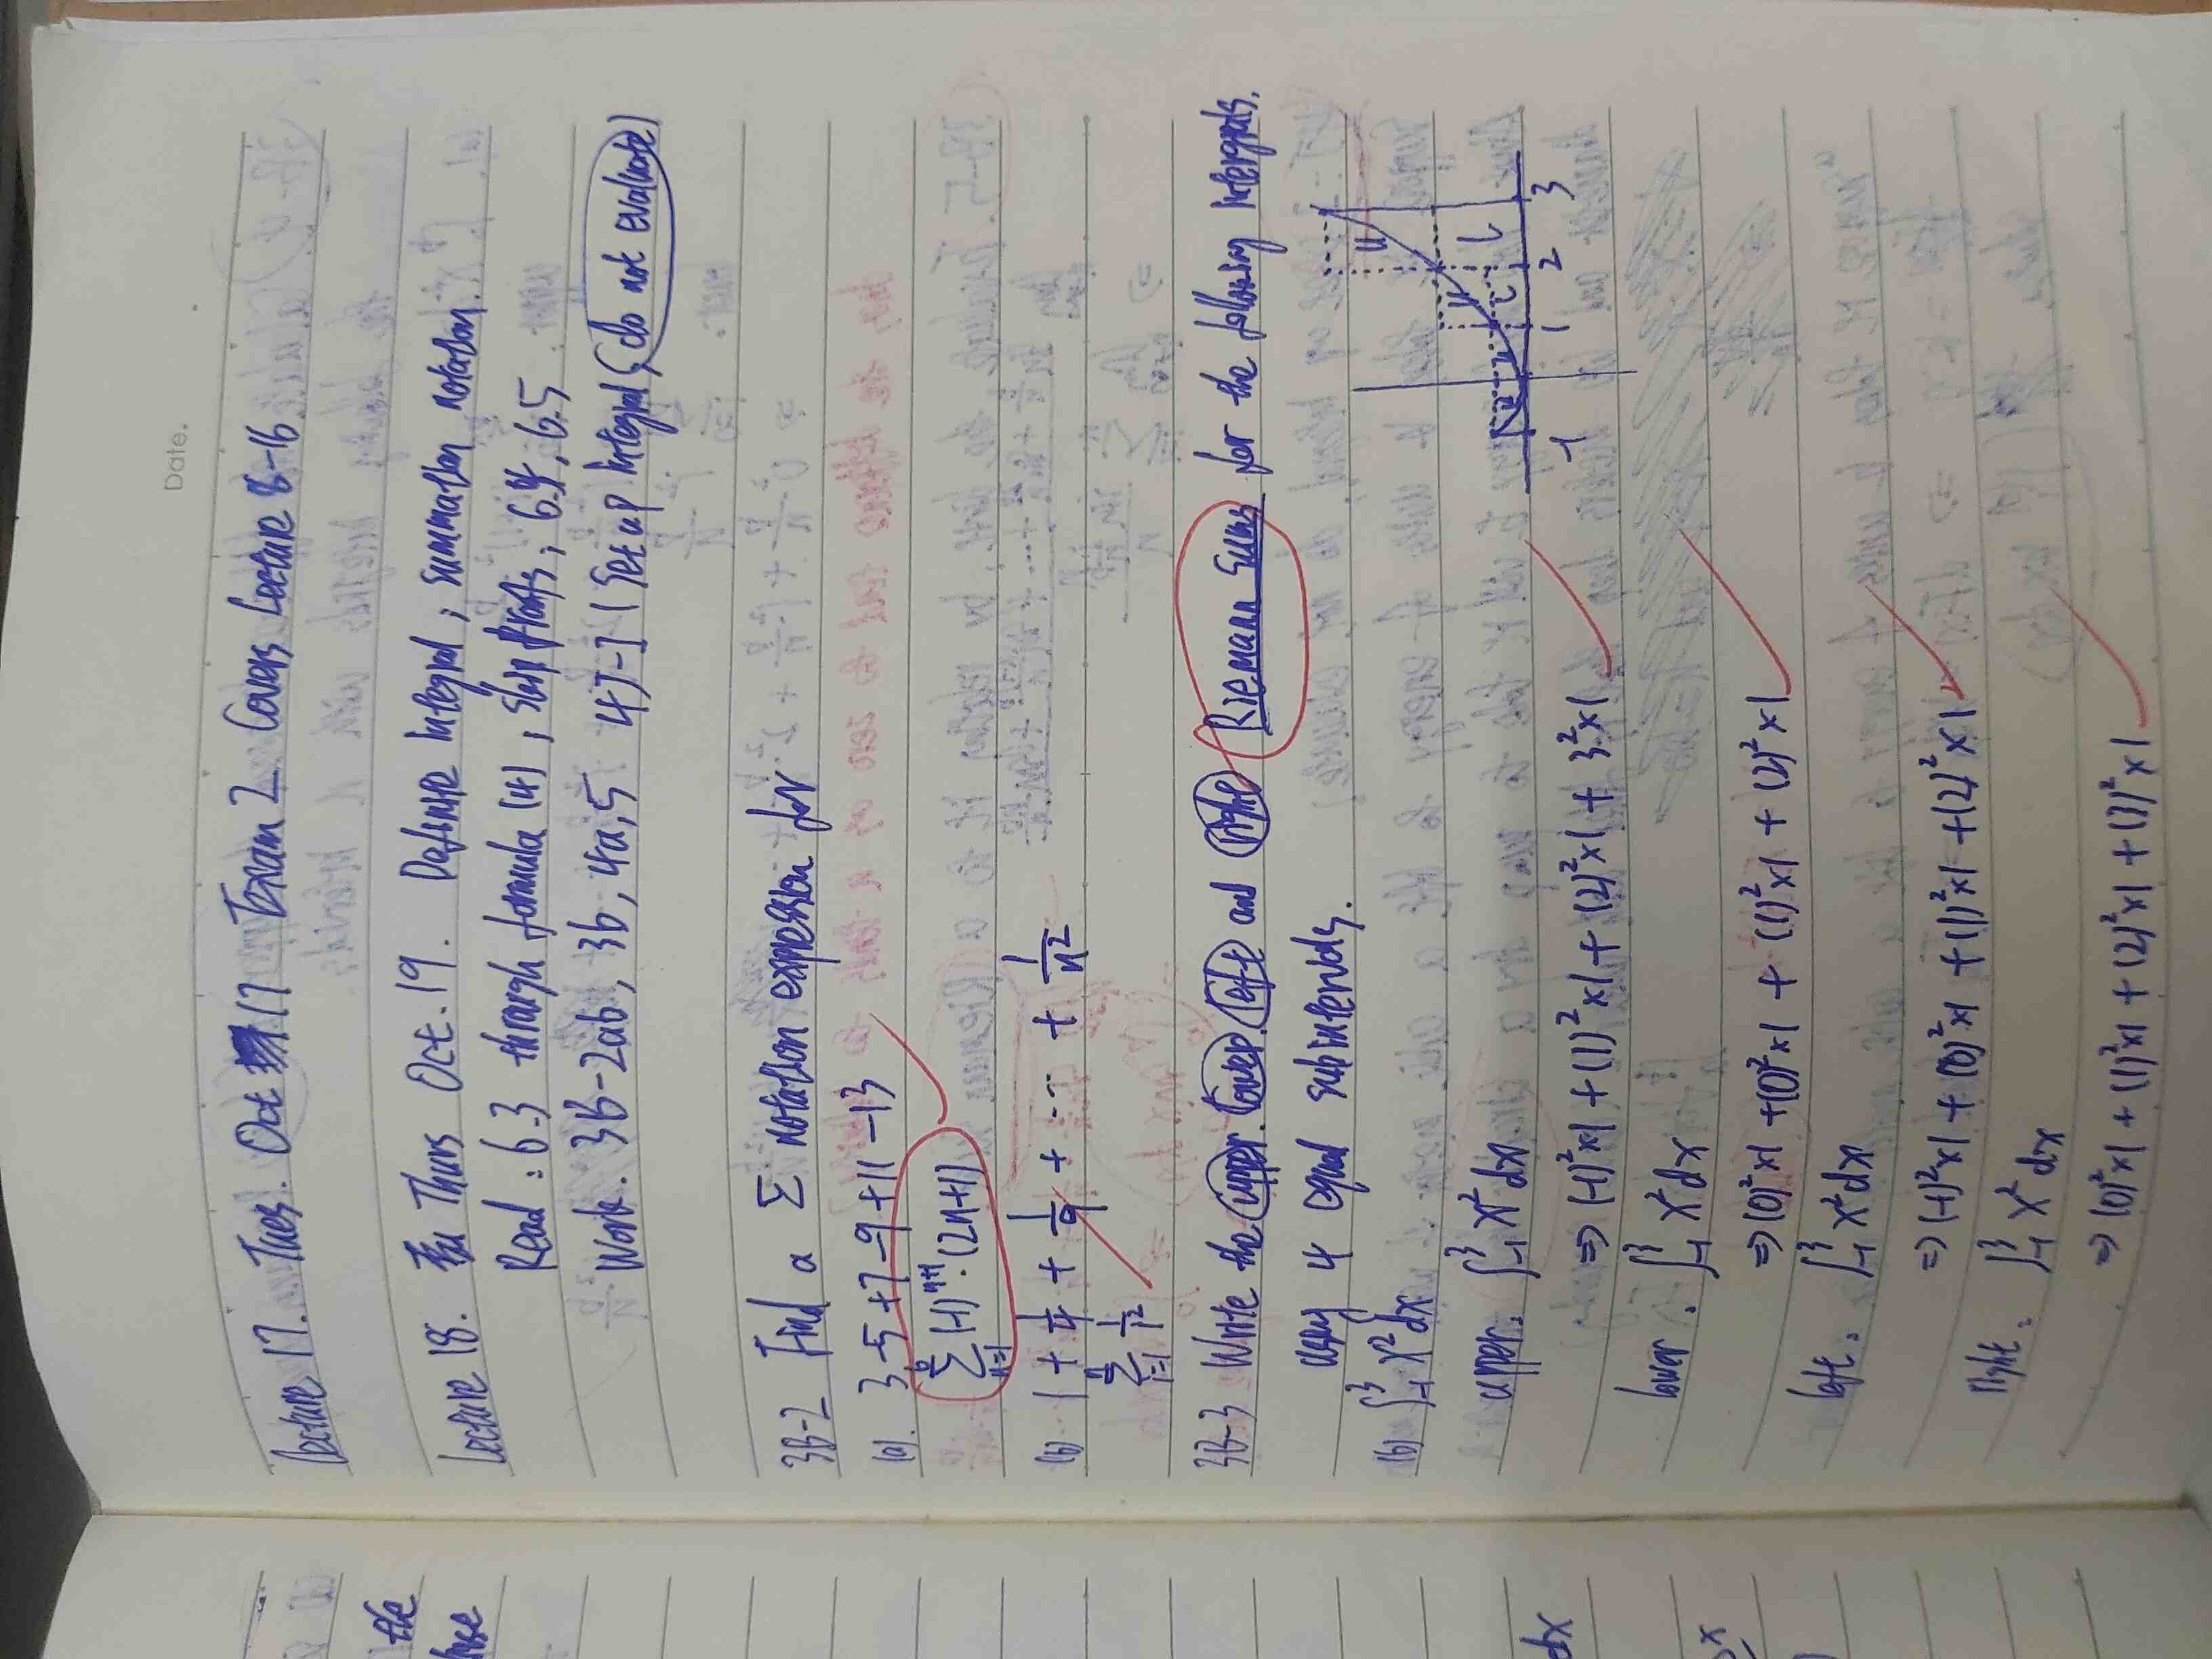 Date.
Lecture 17. Tues. Oct 17 Exam 2 Covers Lecture 8-16
Lecture 18. Thurs Oct. 19. Definite Integral; summation notation.
Read: 6.3 through formula (4); skip proofs; 6.4, 6.5
Work: 3B-2ab, 3b, 4a, 5 4J-1 (set up integral; do not evaluate)
3B-2 Find a Σ notation expression for
(a). 3-5+7-9+11-13
∑_{n=1}^{6} (-1)^{n+1}·(2n+1)
(b) 1 + 1/4 + 1/9 + ... + 1/n²
∑_{i=1}^{n} 1/i²
3B-3 Write the upper. lower. left and right Riemann sums for the following integrals.
using 4 equal subintervals.
(b) ∫_{-1}^{3} x² dx
-1 1 2 3
upper: ∫_{-1}^{3} x² dx
⇒ (-1)²×1 + (1)²×1 + (2)²×1 + 3²×1
lower: ∫_{-1}^{3} x² dx
⇒ (0)²×1 + (0)²×1 + (1)²×1 + (2)²×1
left: ∫_{-1}^{3} x² dx
⇒ (-1)²×1 + (0)²×1 + (1)²×1 + (2)²×1
right: ∫_{-1}^{3} x² dx
⇒ (0)²×1 + (1)²×1 + (2)²×1 + (3)²×1
the
dx